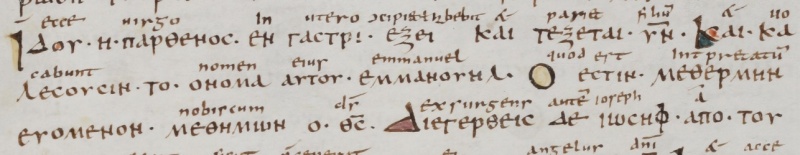 ecce uirgo in utero concipiet &habebit & pariet filiū & uo
ΙΔΟΥ · Η · ΠΑΡΘΕΝΟC · ΕΝ ΓΑCΤΡΙ · ΕΞΕΙ ΚΑΙ ΤΕΞΕΤΑΙ · ΥΝ̄ · ΚΑΙ · ΚΑ
cabunt nomen eius emmanuel quod est Interpretatū
ΛΕCΟΥCΙΝ · ΤΟ · ΟΝΟΜΑ ΑΥΤΟΥ · ΕΜΜΑΝΟΥΗΛ · Ο ΕCΤΙΝ · ΜΕΘΕΡΜΗΝ
nobiscum d̄s exsurgens autē ioseph a
ΕΥΟΜΕΝΟΝ · ΜΕΘΗΜΩΝ Ο · Θ̄C̄ · ΔΙΕΓΕΡΘΕΙC ΔΕ ΙΩCΗΦ · ΑΠΟ · ΤΟΥ
angelus & acce